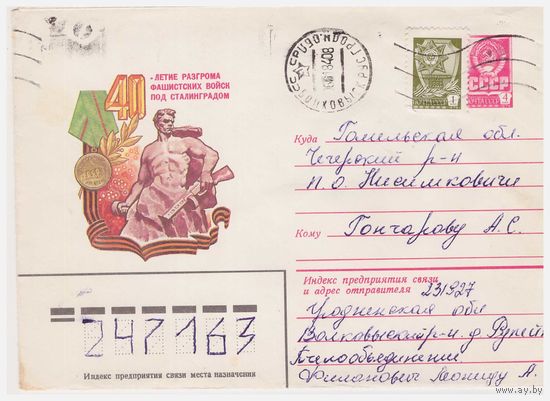 40
-ЛЕТИЕ РАЗГРОМА
ФАШИСТСКИХ ВОЙСК
ПОД СТАЛИНГРАДОМ
СССР
Куда Гомельская обл.
Чечерский р-н
п.о. Нисимковичи
Кому Гончарову А. С.
Индекс предприятия связи
и адрес отправителя 231927
Гродненская обл
Волковысский р-н. д.
Пчелообъединение
Филанович Леониду А.
247163
Индекс предприятия связи места назначения
www.ay.by